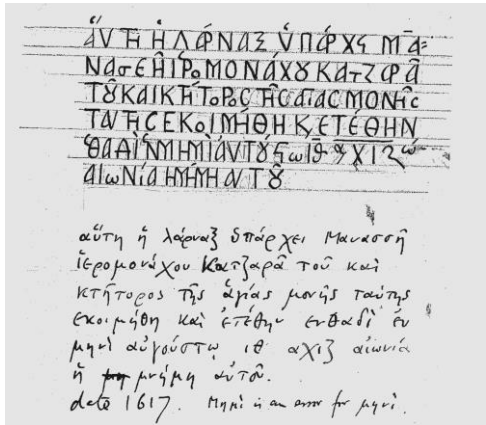 ἄΥΤΗ Ἡ ΛΆΡΝΑΞ ὙΠΆΡΧϛ ΜᾱΑ=
ΝΑσΕ ἩἹΡοΜΟΝΆΧȢ ΚΑΤΖΑΡᾶ
ΤȢ ΚΑΙ ΚΤΉΤΟΡΟC ΤῆC ἁΓΊΑC ΜΟΝῆC
ΤΑΎΤΗC ΕΚΟΙΜΉΘΗ Κ, ΕΤΈΘΗΝ
ἈΙωΝΊΑ Ἡ ΜΉΜΗ ἈΥΤȢ
αὕτη ἡ λάρναξ ὑπάρχει Μανασσῆ
ἱερομονάχου Κατζαρᾶ τοῦ καὶ
κτήτορος τῆς ἁγίας μονῆς ταύτης
εκοιμήθη καὶ ἐτέθην ενθαδὶ ἐν
μηνὶ αὐγούστῳ ιθ αχιζ αἰωνία
ἡ μνήμη αὐτοῦ.
date 1617. Μημι is an error for μηνι.